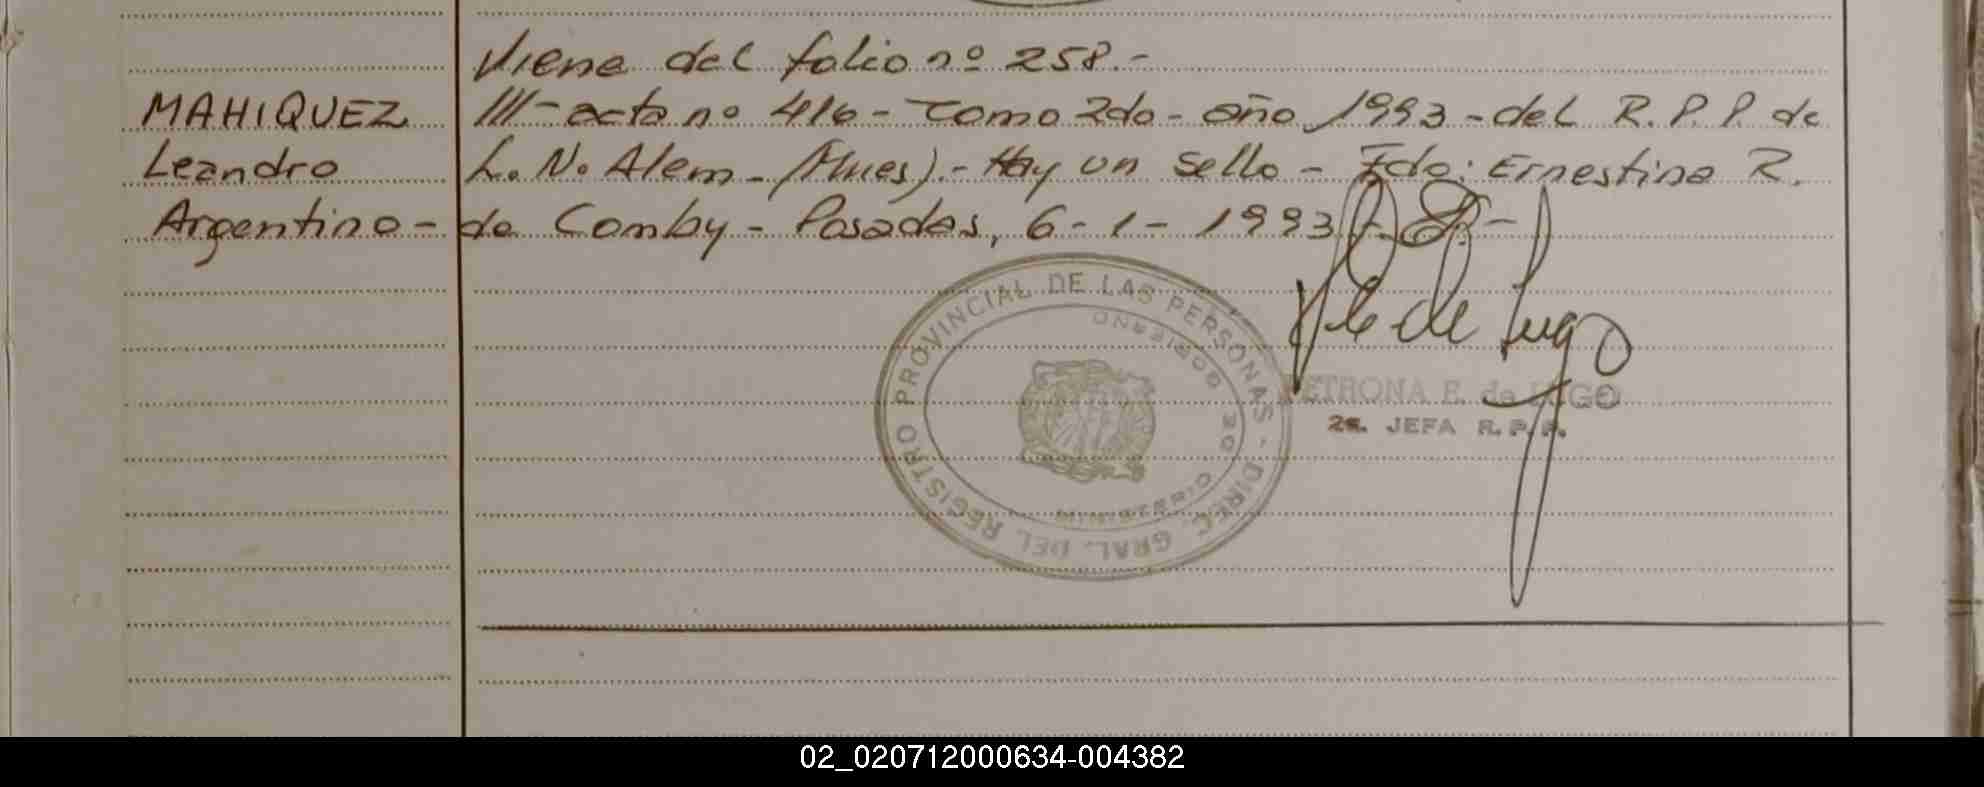 Viene del folio nº 258.-
MAHIQUEZ III-acta nº 416- Tomo 2do- año 1993-del R.P.P. de
Leandro L. N. Alem-(Mnes).-Hay un sello- Fdo: Ernestina R.
Argentino- de Comby- Posadas, 6-1-1993.-
REGISTRO PROVINCIAL DE LAS PERSONAS - DIREC. GRAL. DEL
GOBIERNO
de Lugo
PETRONA E. de LUGO
2a. JEFA R.P.P.
02_020712000634-004382